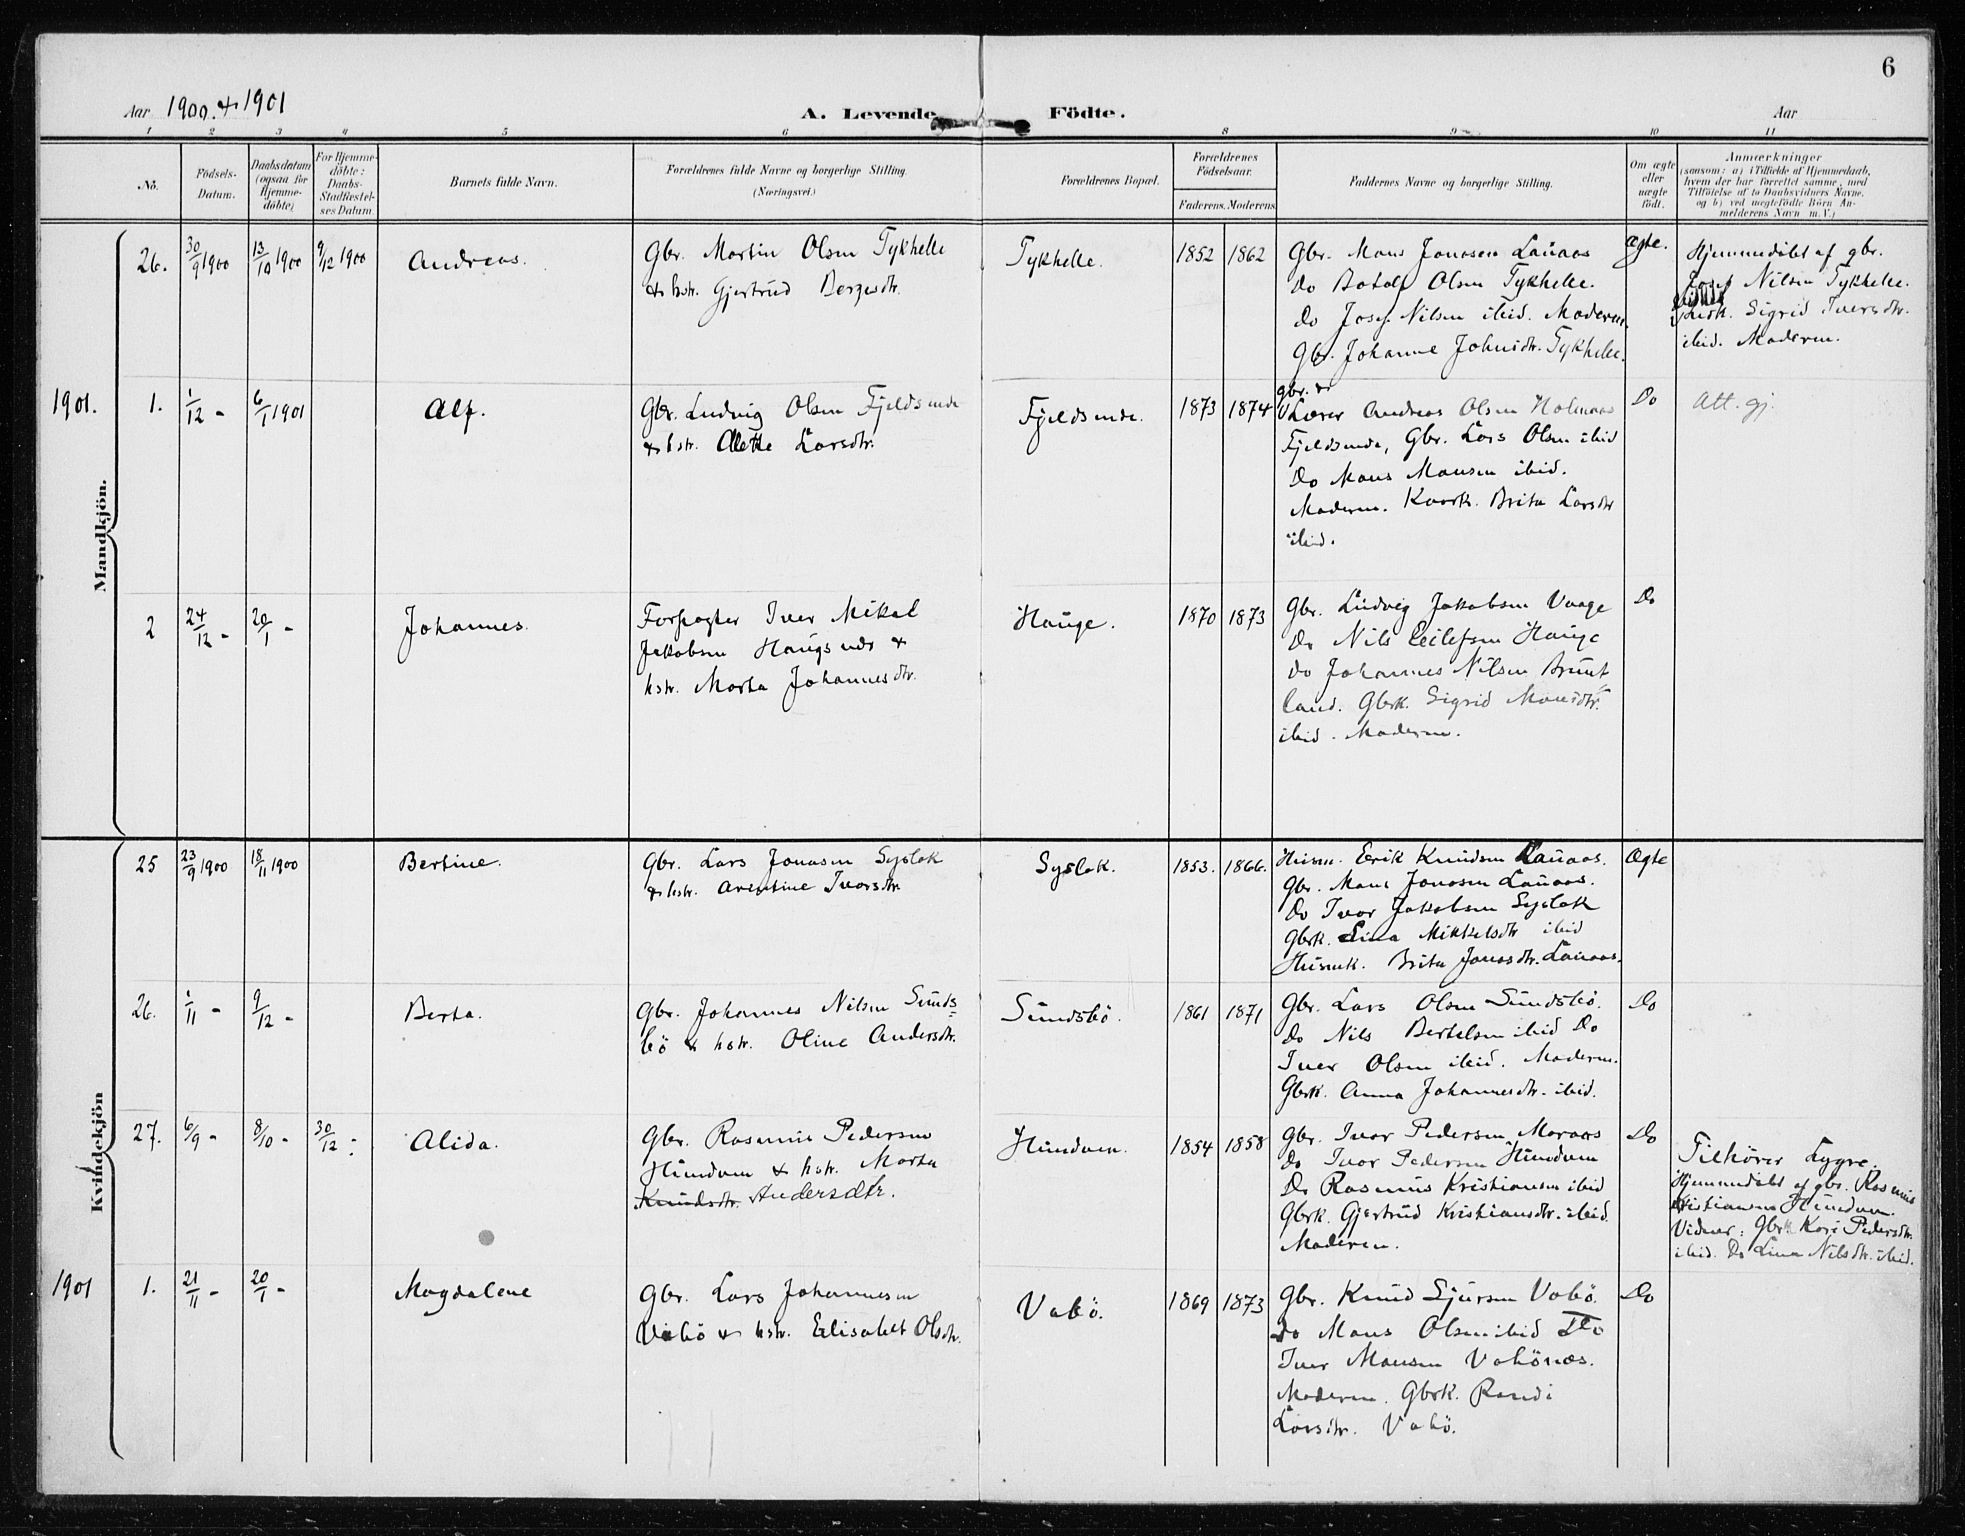 6
Aar 1900 & 1901 A. Levende Födte. Aar
1 2 3 4 5 6 8 9 10 11
No.
Födsels-
Datum.
Daabsdatum
(ogsaa for
Hjemme-
döbte)
For Hjemme-
döbte:
Daabs-
Stadfæstel-
ses Datum.
Barnets fulde Navn.
Forældrenes fulde Navne og borgerlige Stilling.
(Næringsvei.)
Forældrenes Bopæl.
Forældrenes
Födselsaar.
Faderens. Moderens.
Faddernes Navne og borgerlige Stilling.
Om ægte
eller
uægte
födt.
Anmærkninger
(saasom: a) i Tilfælde af Hjemmedaab,
hvem der har forrettet samme, med
Tilföielse af to Daabsvidners Navne,
og b) ved uægtefödte Börn An-
melderens Navn m. V.)
Mandkjön.
26. 30/9 1900 13/10 1900 9/12 1900 Andreas.
Gbr. Martin Olsen Tykhelle
& hstr. Gjertrud Bergesdtr.
Tykhelle. 1852 1862
Gbr. Mons Jonasen Lauaas
Do Botolf Olsen Tykhelle.
Do Josef Nilsen ibid. Moderen.
Gbr. Johanne Johnsdtr. Tykhelle.
Ægte.
Hjemmedöbt af gbr.
Josef Nilsen Tykhelle.
Sigrid Iversdtr.
ibid. Moderen.
1901.
1. 1/12 - 6/1 1901 Alf.
Gbr. Ludvig Olsen Fjeldsende
& hstr. Alette Larsdtr.
Fjeldsende. 1873 1874
gbr. &
Lærer Andreas Olsen Holmaas
Fjeldsende, Gbr. Lars Olsen ibid
Do Mons Monsen ibid.
Moderen. Kaark. Brita Larsdtr
ibid.
Do
Att. gj.
2 24/12 - 20/1 - Johannes.
Forpagter Iver Mikal
Jakobsen Haugsnæs &
hstr. Marta Johannesdtr.
Hauge. 1870 1873
Gbr. Ludvig Jakobsen Vaage
Do Nils Eilefsen Hauge
Do Johannes Nilsen Brunt
land. Gbrk. Sigrid Monsdtr.
ibid. Moderen.
Do
Kvindekjön
25 23/9 1900 18/11 1900 Bertine.
Gbr. Lars Jonasen Syslak
& hstr. Arentine Ivarsdtr.
Syslak. 1853. 1866.
Husm. Erik Knudsen Lauaas.
Gbr. Mons Jonasen Lauaas.
Do Ivar Jakobsen Syslak
Gbrk. Lina Mikkelsdtr ibid
Husmk. Brita Jonasdtr. Lauaas.
Ægte
26. 1/11 - 9/12 - Berta.
Gbr. Johannes Nilsen Sunds=
bö & hstr. Oline Andersdtr.
Sundsbö. 1861 1871
Gbr. Lars Olsen Sundsbö.
Do Nils Bertelsen ibid Do
Iver Olsen ibid. Moderen.
Gbrk. Anna Johannesdtr. ibid.
Do
27. 6/9 - 8/10 - 30/12 - Alida.
Gbr. Rasmus Pedersen
Hundven & hstr. Marta
Knudsdtr. Andersdtr.
Hundven. 1854 1858
Gbr. Ivar Pedersen Moraas
Do Ivar Pedersen Hundven
Do Rasmus Kristiansen ibid
Gbrk. Gjertrud Kristiansdtr. ibid.
Moderen.
Do
Tilhörer Lygre.
Hjemmedöbt af gbr. Rasmus
Kristiansen Hundven.
Vidner: Gbrk Kari Pedersdtr.
ibid. Do Lina Nilsdtr. ibid.
1901
1. 21/11 - 20/1 - Magdalene
Gbr. Lars Johannesen
Vabö & hstr. Elisabet Olsdtr.
Vabö. 1869 1873
Gbr. Knud Sjursen Vabö.
Do Mons Olsen ibid Do
Iver Monsen Vabönæs.
Moderen. Gbrk. Randi
Larsdtr. Vabö.
Do